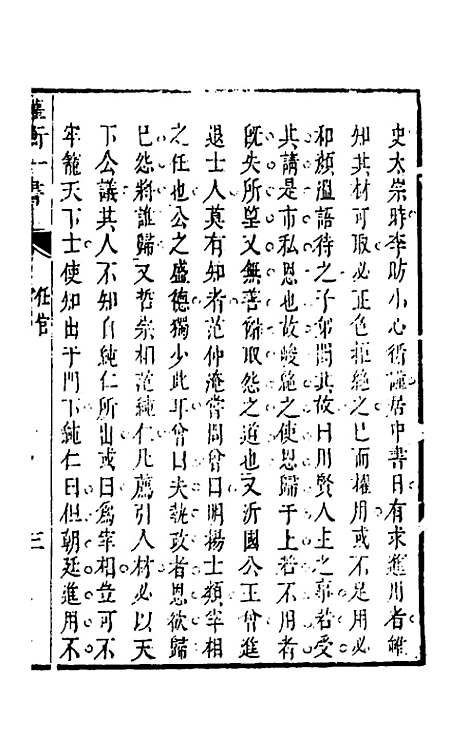 史太宗時李昉小心循謹居中書日有求進用者雖
知其材可取必正色拒絶之已而擢用或不足用必
和顔溫語待之子弟問其故曰用賢人主之事若受
其請是市私恩也故峻絶之使恩歸于上若不用者
旣失所望又無善辭取怨之道也又沂國公王曾進
退士人莫有知者范仲淹嘗問曾曰明揚士類宰相
之任也公之盛德獨少此耳曾曰夫執政者恩欲歸
已怨將誰歸又哲宗相范純仁凡薦引人材必以天
下公議其人不知自純仁所出或曰爲宰相豈可不
牢籠天下士使知出于門下純仁曰但朝廷進用不
權衡一書
任官
三